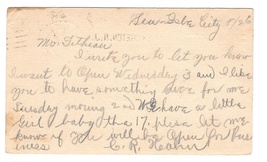 City 5/26
Mr. Titheair
I write you to let you know
I want to Open Wednesday 3 and I like
you to have something give for me
Tuesday noring 2 and We have a little
Girl baby tha 17. plese let me
know if you will be Open for bus
iness
C. R. Hearn